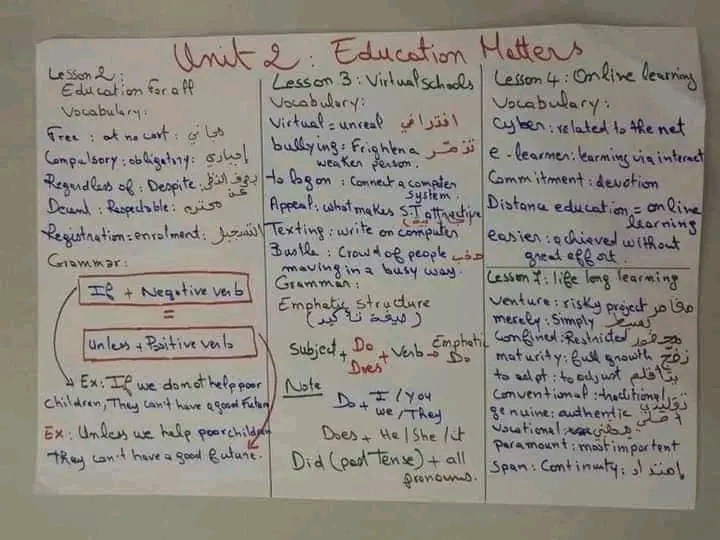 Unit 2 : Education Matters
Lesson 2 :
Education for all
Vocabulary :
Free : at no cost : مجاني
Compulsory : obligatory : إجباري
Regardless of : Despite : بغض النظر عن
Decent : Respectable : محترم
Registration = enrolment : التسجيل
Grammar :
If + Negative verb
=
Unless + Positive verb
Ex : If we do not help poor
children, They can't have a good Future
Ex : Unless we help poor children
They can't have a good future.
Lesson 3 : Virtual schools
Vocabulary :
Virtual = unreal افتراضي
bullying : Frighten a
weaker person.
to log on : Connect a computer
system.
Appeal : what makes S.T attractive
Texting : write on computer
Bustle : Crowd of people
moving in a busy way.
Grammar :
Emphatic structure
(صيغة تأكيد)
Subject + Do
Does + Verb → Emphatic
Do
Note
Do + I / You
we / They
Does + He / She / it
Did (past Tense) + all
pronouns.
Lesson 4 : Online learning
Vocabulary :
Cyber : related to the net
e-learner : learning via internet
Commitment : devotion
Distance education = online
learning
easier : achieved without
great effort.
Lesson 7 : life long learning
venture : risky project
merely : Simply
Confined : Restricted
maturity : full growth نضج
to adapt : to adjust يتأقلم
Conventional : traditional تقليدي
genuine : authentic أصلي
vocational : مهني
paramount : most important
span : Continuity : امتداد